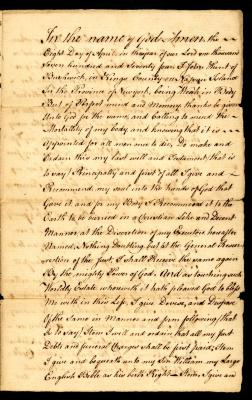 In the name of God Amen. the
Eight Day of April in the year of our Lord one thousand
seven hundred and Seventy four I John Hunt of
Bushwick, in Kings County on Nassau Island
in the Province of Newyork, being Weak in Body
But of Perfect mind and Memory thanks be given
Unto God for the same, and calling to mind the
Mortallity of my body and knowing that it is
Appointed for all men once to die, Do make and
Ordain this my last will and Testament, that is
to say, Principally and first of all I give and
Recommend my soul into the hands of God that
Gave it and for my Body I Recommend it to the
Earth to be buried in a Christian Like and Decent
Manner at the Discretion of my Executors hereafter
Named, Nothing Doubting but at the General Resur-
rection of the Just I shall Receive the same again
By the mighty Power of God. And as touching such
Worldly Estate wherewith it hath pleased God to bless
Me with in this Life I give Devise, and Dispose
of the Same in Manner and form following, that
is to say, Item I will and ordain that all my just
Debts and funeral Charges shall be first paid; Item
I give and bequeath unto my Son William my Large
English Bible as his birth Right — Item, I give an